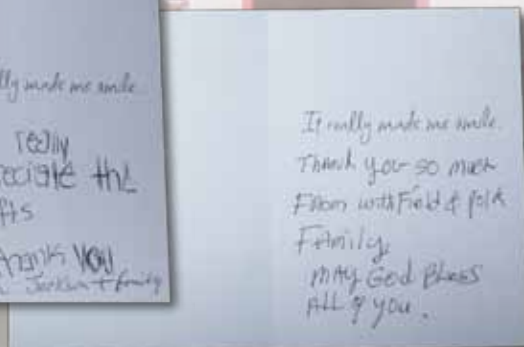 lly made me smile.
really
eciate the
fts
hanks you
Jackson + family
It really made me smile.
Thank you so much
From with Field & folk
Family,
MAY God Bless
ALL of you.